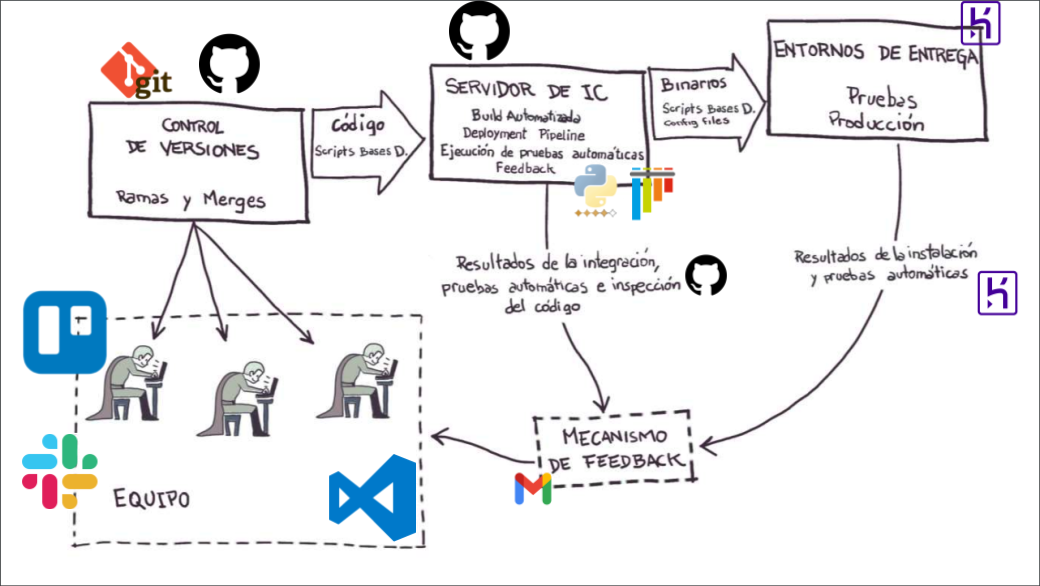 git
CONTROL
DE VERSIONES
Ramas y Merges
Código
Scripts Bases D.
SERVIDOR DE IC
Build Automatizada
Deployment Pipeline
Ejecución de pruebas automáticas
Feedback
Binarios
Scripts Bases D.
Config Files
ENTORNOS DE ENTREGA
Pruebas
Producción
Resultados de la integración,
pruebas automáticas e inspección
del código
Resultados de la instalación
y pruebas automáticas
MECANISMO
DE FEEDBACK
EQUIPO